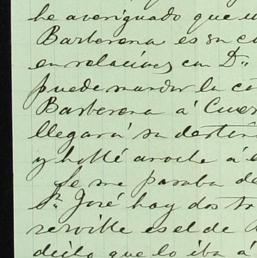 he averiguado que u
Barberena es su cu
en relacion, con Dn
puede mandar la ca
Barberena á Cuer
llegará su destin
y hallé anoche á e
Se me pasaba de
Sr. José hay dos tr
servible es el de
dicho que lo iba á